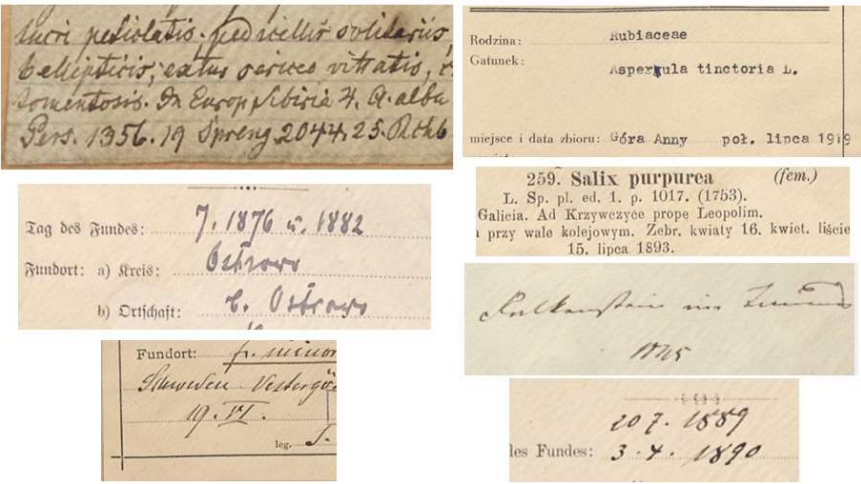 lucri petiolatis. pedicellis solitariis,
b ellipticis; extus sericeo vittatis,
tomentosis. In Europ. Sibiria 4. A. alba
Pers. 1356. 19 Spreng 2044. 25. Rchb
Tag des Fundes: 7. 1876 u. 1882
Fundort: a) Kreis: Ostrowo
b) Ortschaft: b. Ostrowo
Fundort: fr. minor
Schweden Vestergö
19. VI.
leg. J.
Rodzina: Rubiaceae
Gatunek: Asperula tinctoria L.
miejsce i data zbioru: Góra Anny poł. lipca 1919
259. Salix purpurea (fem.)
L. Sp. pl. ed. 1. p. 1017. (1753).
Galicia. Ad Krzywczyce prope Leopolim.
przy wale kolejowym. Zebr. kwiaty 16. kwiet. liście
15. lipca 1893.
Falkenstein im
20 7. 1889
des Fundes: 3. 4. 1890